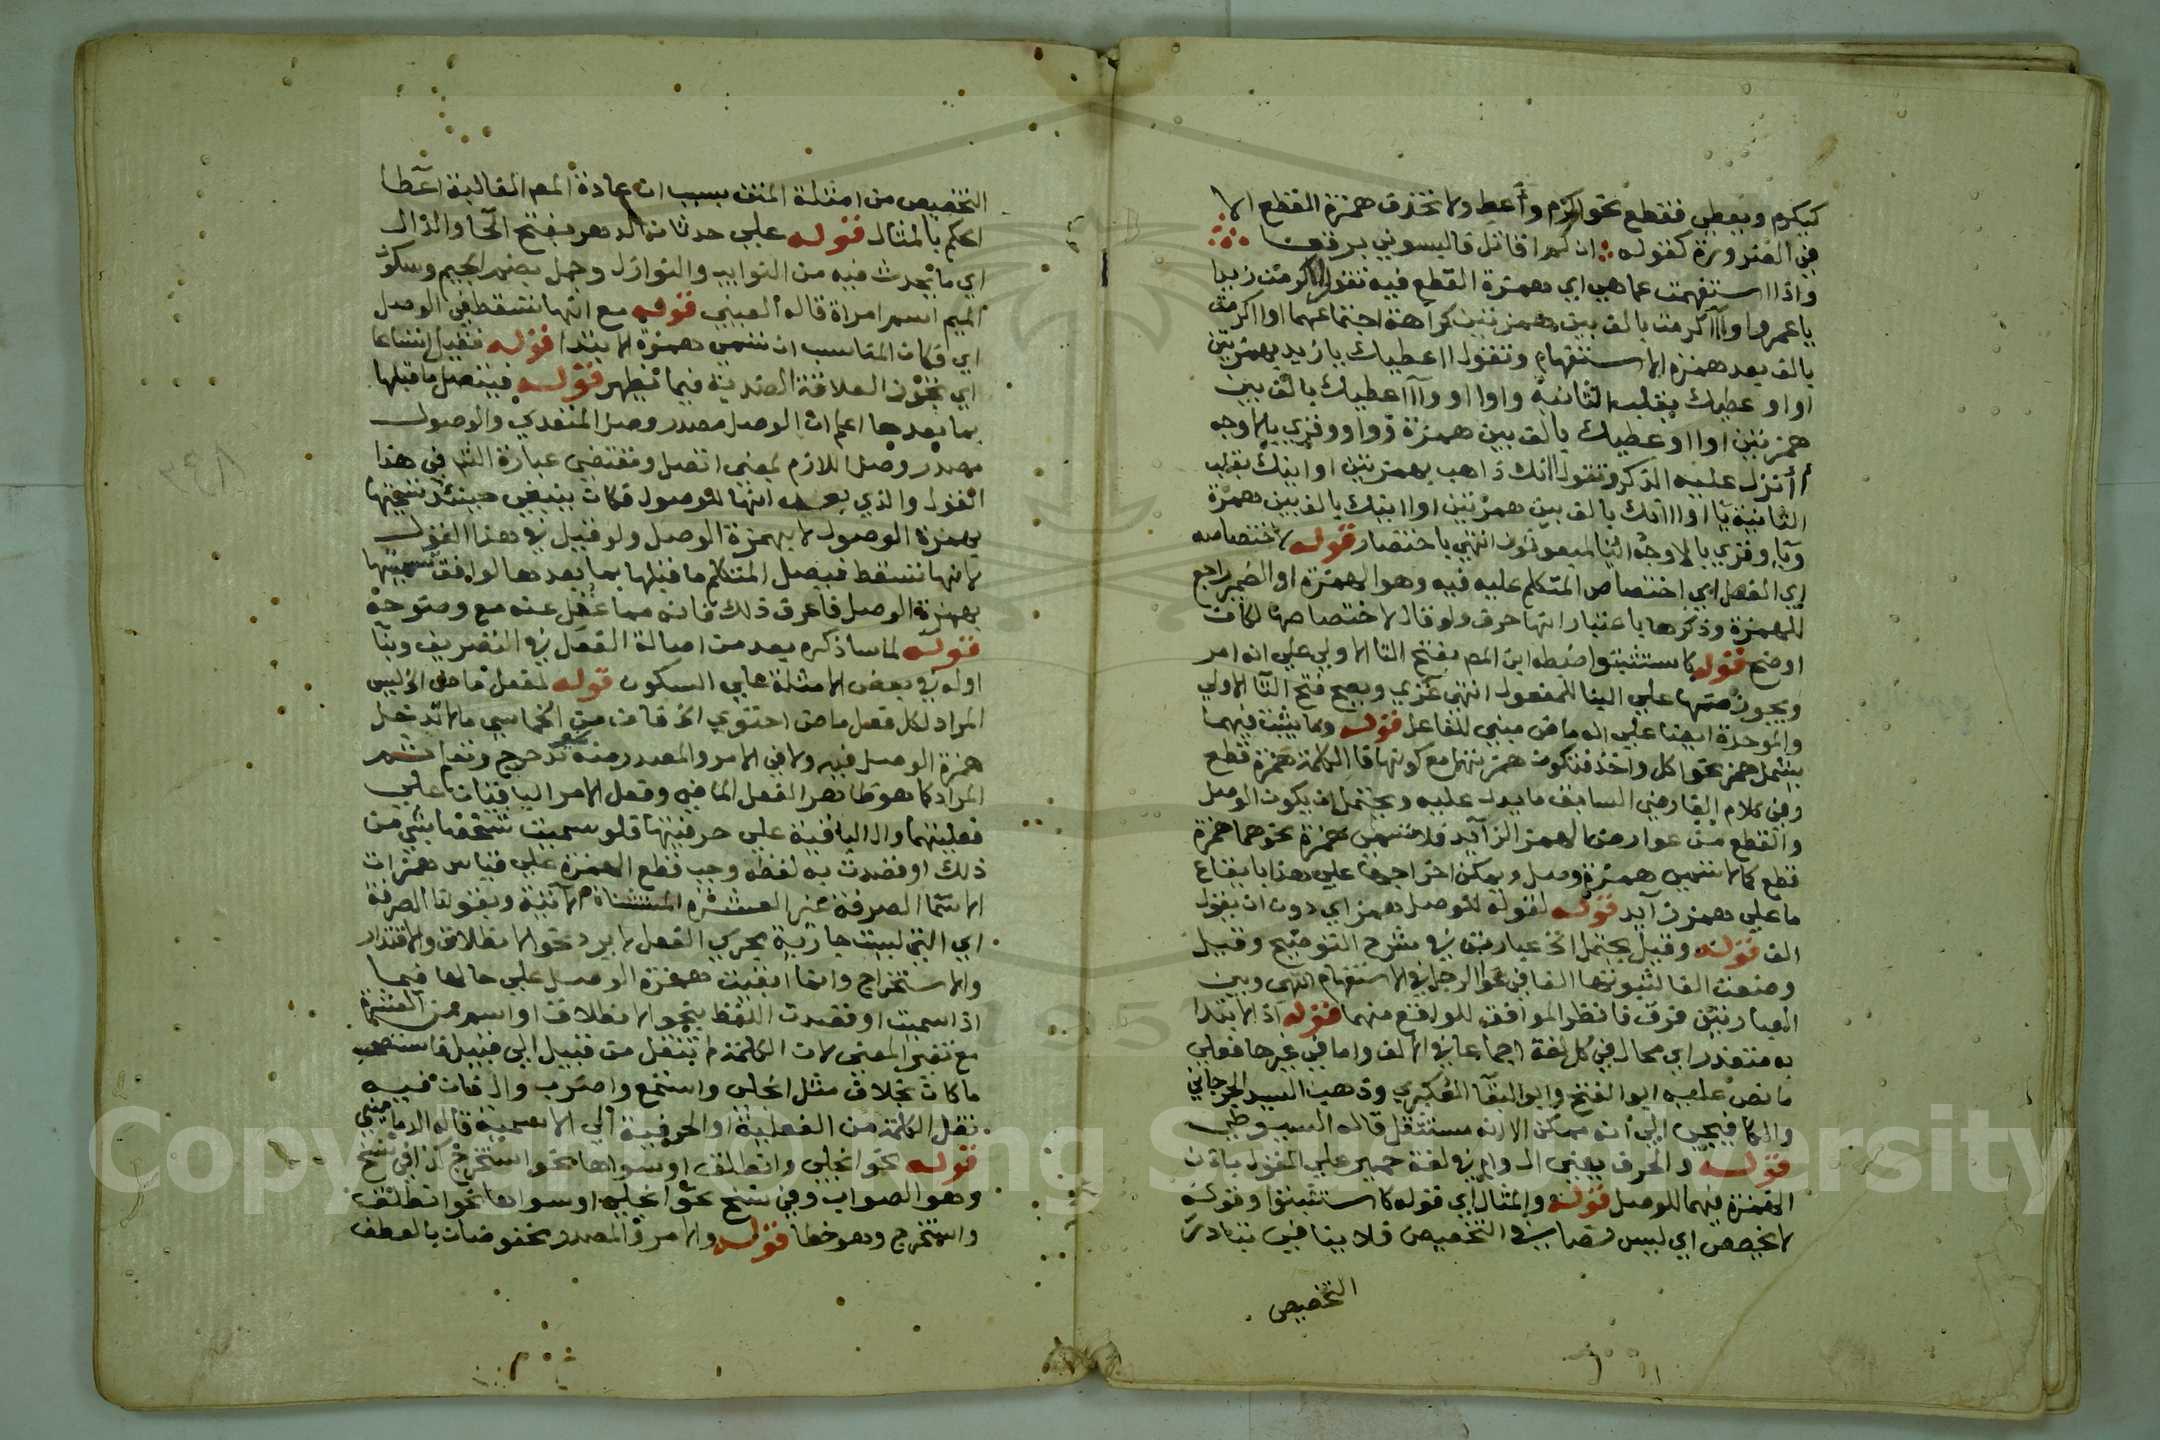 كيكرم ويعطي فقطع نحو اكرم وأعط ولا تحذف همزة القطع الا
في الضرورة كقوله ان لم اقاتل فالبسوني برقعا
واذا استفهمت عما هي اي همزة القطع فيه تقول أأكرمت زيدا
يا عمرو او آأكرمت بالف بين همزتين كراهة اجتماعهما او اأكرمت
بالف بعد همزة الاستفهام وتقول أأعطيك يا زيد بهمزتين
او اوعطيك بقلب الثانية واوا او وآاعطيك بالف بين
همزتين او ااوعطيك بالف بين همزة وواو وقري بالاوجه
أأنزل عليه الذكر وتقول اانك ذاهب بهمزتين او اينك بقلب
الثانية يا او اانك بالف بين همزتين او اينك بالف بين همزة
ويا وقري بالاوجه اينا لمبعوثون انتهي باختصار قوله لاختصاصه
اي الفصل اي اختصاص المتكلم عليه فيه وهو الهمزة او الضمير راجع
للهمزة وذكرها باعتبار انها حرف ولو قال لاختصاصها لكانت
اوضح قوله كاستثبتوا ضبطه ابن المص بفتح التا الاولي علي انه امر
ويجوز ضمها علي البنا للمفعول انتهي غزي ويصح فتح التا الاولي
والموحدة ايضا علي انه ماض مبني للفاعل قوله وما يثبت فيهما
يشمل همز نحو اكل واخذ فتكون همزتهما مع كونها فا الكلمة همزة قطع
وفي كلام القارضي السابق ما يدل عليه ويحتمل ان يكون الوصل
والقطع من عوارض الهمز الزايد فلا تسمي همزة نحوهما همزة
قطع كما لا تسمي همزة وصل ويمكن اخراجها علي هذا بايقاع
ما علي همز زايد قوله لقوله للوصل همز اي دون ان يقول
الف قوله وقيل يحتمل الخ عبارته في شرح التوضيح وقيل
وضعت الفا لثبوتها الفا في نحو الرجل في الاستفهام انتهي وبين
العبارتين فرق فانظر الموافق للواقع منهما قوله اذ الابتدا
به متعذر اي محال في كل لغة اجماعا في الالف واما في غيرها فعلي
ما نص عليه ابو الفتح وابو البقا العكبري وذهب السيد الجرجاني
والكافيجي الي انه ممكن الا انه مستثقل قاله السيوطي
قوله والحرف يعني ال وام في لغة حمير علي القول بان
الهمزة فيهما للوصل قوله والمثال اي قوله كاستثبتوا وقوله
لا يخصص اي ليس نصا في التخصيص فلا ينافي تبادر
التخصيص
التخصيص من امثلة المتن بسبب ان عادة المص الغالبة اعطا
الحكم بالمثال قوله علي حدثان الدهر بفتح الحا والدال
اي ما يحدث فيه من النوايب والنوازل وجمل بضم الجيم وسكون
الميم اسم امراة قاله العيني قوله مع انها تسقط في الوصل
اي فكان المناسب ان تسمي همزة الابتدا قوله فقيل اتساعا
اي تجوزا لعلاقة الضدية فيما يظهر قوله فيتصل ما قبلها
بما بعدها اعلم ان الوصل مصدر وصل المتعدي والوصول
مصدر وصل اللازم بمعني اتصل ومقتضي عبارة الش في هذا
القول والذي بعده انها للوصول فكان ينبغي حينئذ تسميتها
بهمزة الوصول لا بهمزة الوصل ولو قيل في هذا القول
لانها تسقط فيصل المتكلم ما قبلها بما بعدها لوافق تسميتها
بهمزة الوصل فاعرف ذلك فانه مما غفل عنه مع وضوحه
قوله لما ساذكره بعد من اصالة الفعل في التصريف وبنا
اوله في بعض الامثلة علي السكون قوله لفعل ماض الخ ليس
المراد لكل فعل ماض احتوي الخ فان من الخماسي ما لا تدخل
همزة الوصل فيه ولا في الامر والمصدر منه نحو تدحرج وتعلم ثم
المراد كما هو ظاهر الفعل الماضي وفعل الامر الباقيان علي
فعليتهما وال الباقية علي حرفيتها فلو سميت شخصا بشي من
ذلك او قصدت به لفظه وجب قطع الهمزة علي قياس همزات
الاسما الصرفة غير العشرة المستثناة الاتية وبقولنا الصرفة
اي التي ليست جارية مجري الفعل لا يرد نحو الانطلاق والاقتدار
والاستخراج وانما ابقيت همزة الوصل علي حالها فيما
اذا سميت او قصدت اللفظ بنحو الانطلاق او اسم من العشرة
مع تغير المعني لان الكلمة لم تنقل من قبيل الي قبيل فاستصحب
ما كان بخلاف مثل انجلي واستمع واضرب وال فان فيه
نقل الكلمة من الفعلية او الحرفية الي الاسمية قاله الدماميني
قوله نحو انجلي وانطلق او سواها نحو استخرج كذا في نسخ
وهو الصواب وفي نسخ نحو انجلي او سواها نحو انطلق
واستخرج وهو خطا قوله والامر والمصدر مخفوضان بالعطف
Copyright © King Saud University
1957